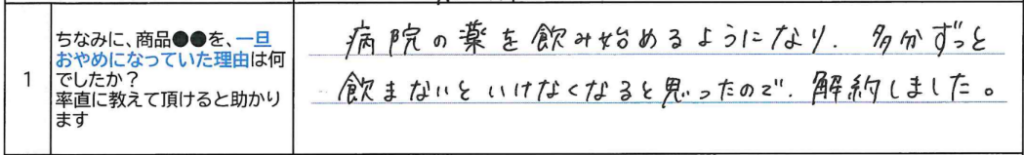 1
ちなみに、商品●●を、一旦
おやめになっていた理由は何
でしたか？
率直に教えて頂けると助かり
ます
病院の薬を飲み始めるようになり、多分ずっと
飲まないといけなくなると思ったので、解約しました。